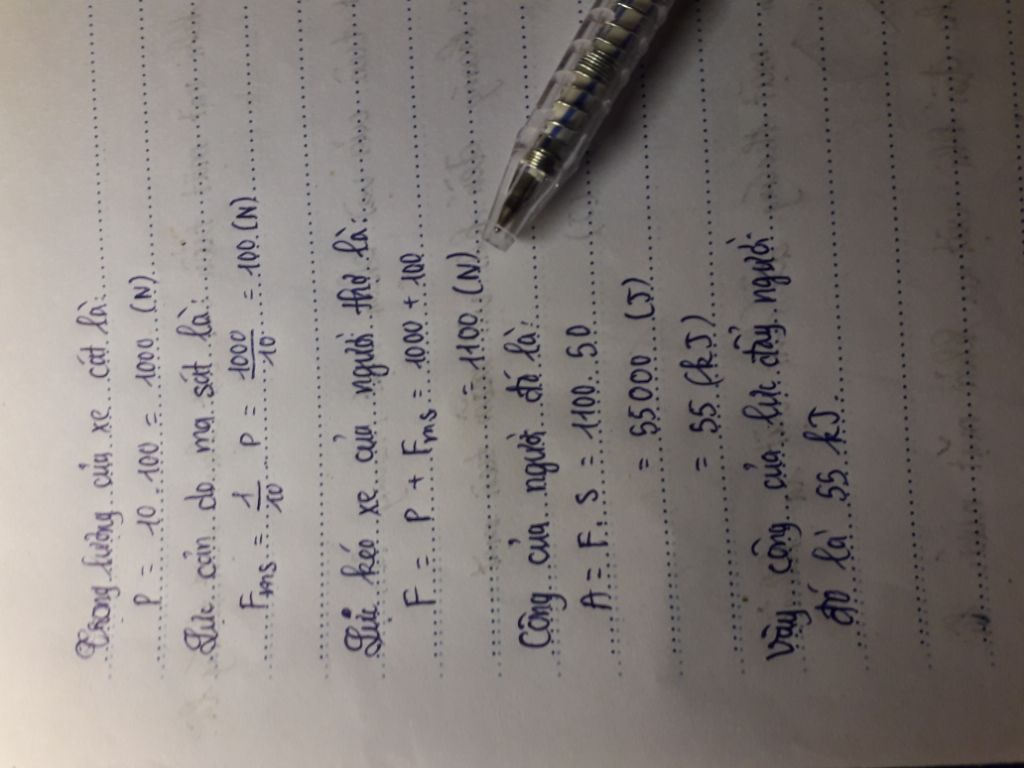 Trọng lượng của xe cát là:
P = 10.100 = 1000 (N)
Lực cản do ma sát là:
Fms = 1/10 P = 1000/10 = 100 (N)
Lực kéo xe của người thợ là:
F = P + Fms = 1000 + 100
= 1100 (N)
Công của người đó là:
A = F.S = 1100.50
= 55000 (J)
= 55 (kJ)
Vậy công của lực đẩy người
đó là 55 kJ